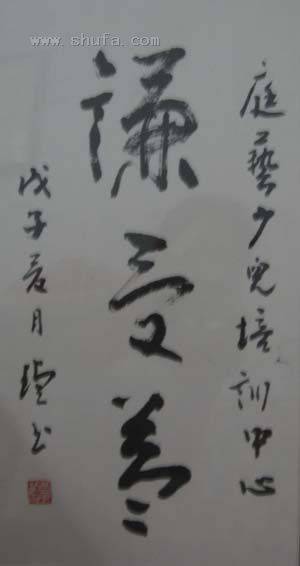 www.shufa.com
庭藝少兒培訓中心
謙受益
戊子月书